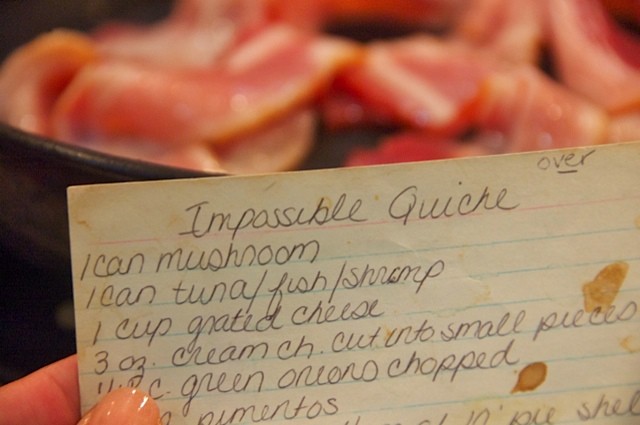 over
Impossible Quiche
1 can mushroom
1 can tuna/fish/shrimp
1 cup grated cheese
3 oz. cream ch. cut into small pieces
c. green onions chopped
pimentos
10" pie shel